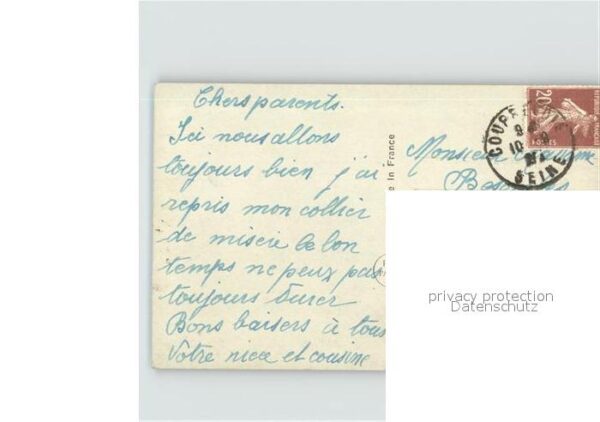 Chers parents.
Ici nous allons
toujours bien j'ai
repris mon collier
de misère le bon
temps ne peux pas
toujours durer
Bons baisers à tous
Votre niece et cousine
e In France
Monsieur
20c
POSTES
COURBEVOIE
SEINE
privacy protection
Datenschutz